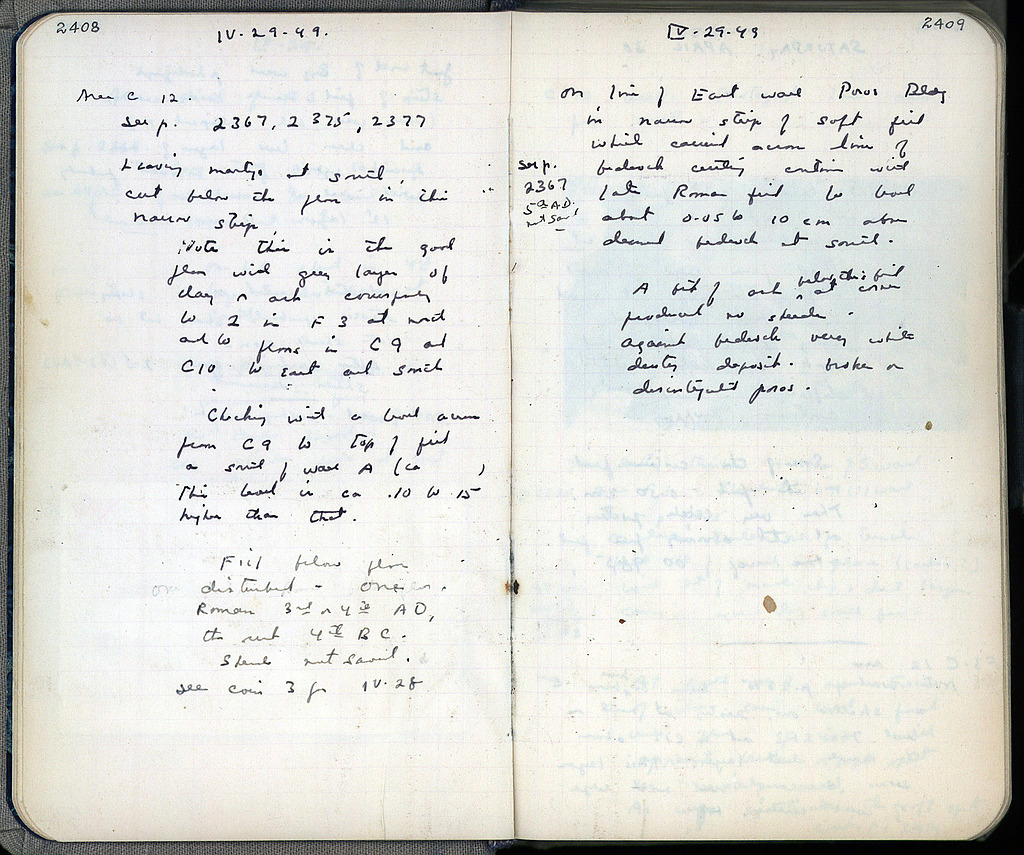 2408
IV-29-49.
Area C 12.
see p. 2367, 2375, 2377
Leaving at south
cut below the floor in this
narrow strip.
Note this is the good
floor with grey layer of
clay & ash
to 2 in F 3 at north
and to floors in C 9 and
C10 to East and South
Checking with a level across
from C9 to top of fill
a south of wall A (ca )
This level is ca .10 to .15
higher than that.
Fill below floor
disturbed - one
Roman 3rd or 4th AD,
the rest 4th BC.
Sherds not saved.
see coin 3 for IV-28
2409
IV-29-49
On line of East wall Poros Bldg
in narrow strip of soft fill
which carried across line of
bedrock cutting contin with
late Roman fill to level
about 0.05 to 10 cm above
bedrock at south.
see p.
2367
5th AD.
not saved
A bit of ash below this fill at corner
produced no sherds.
against bedrock very white
deposit. broken or
disintegrated poros.